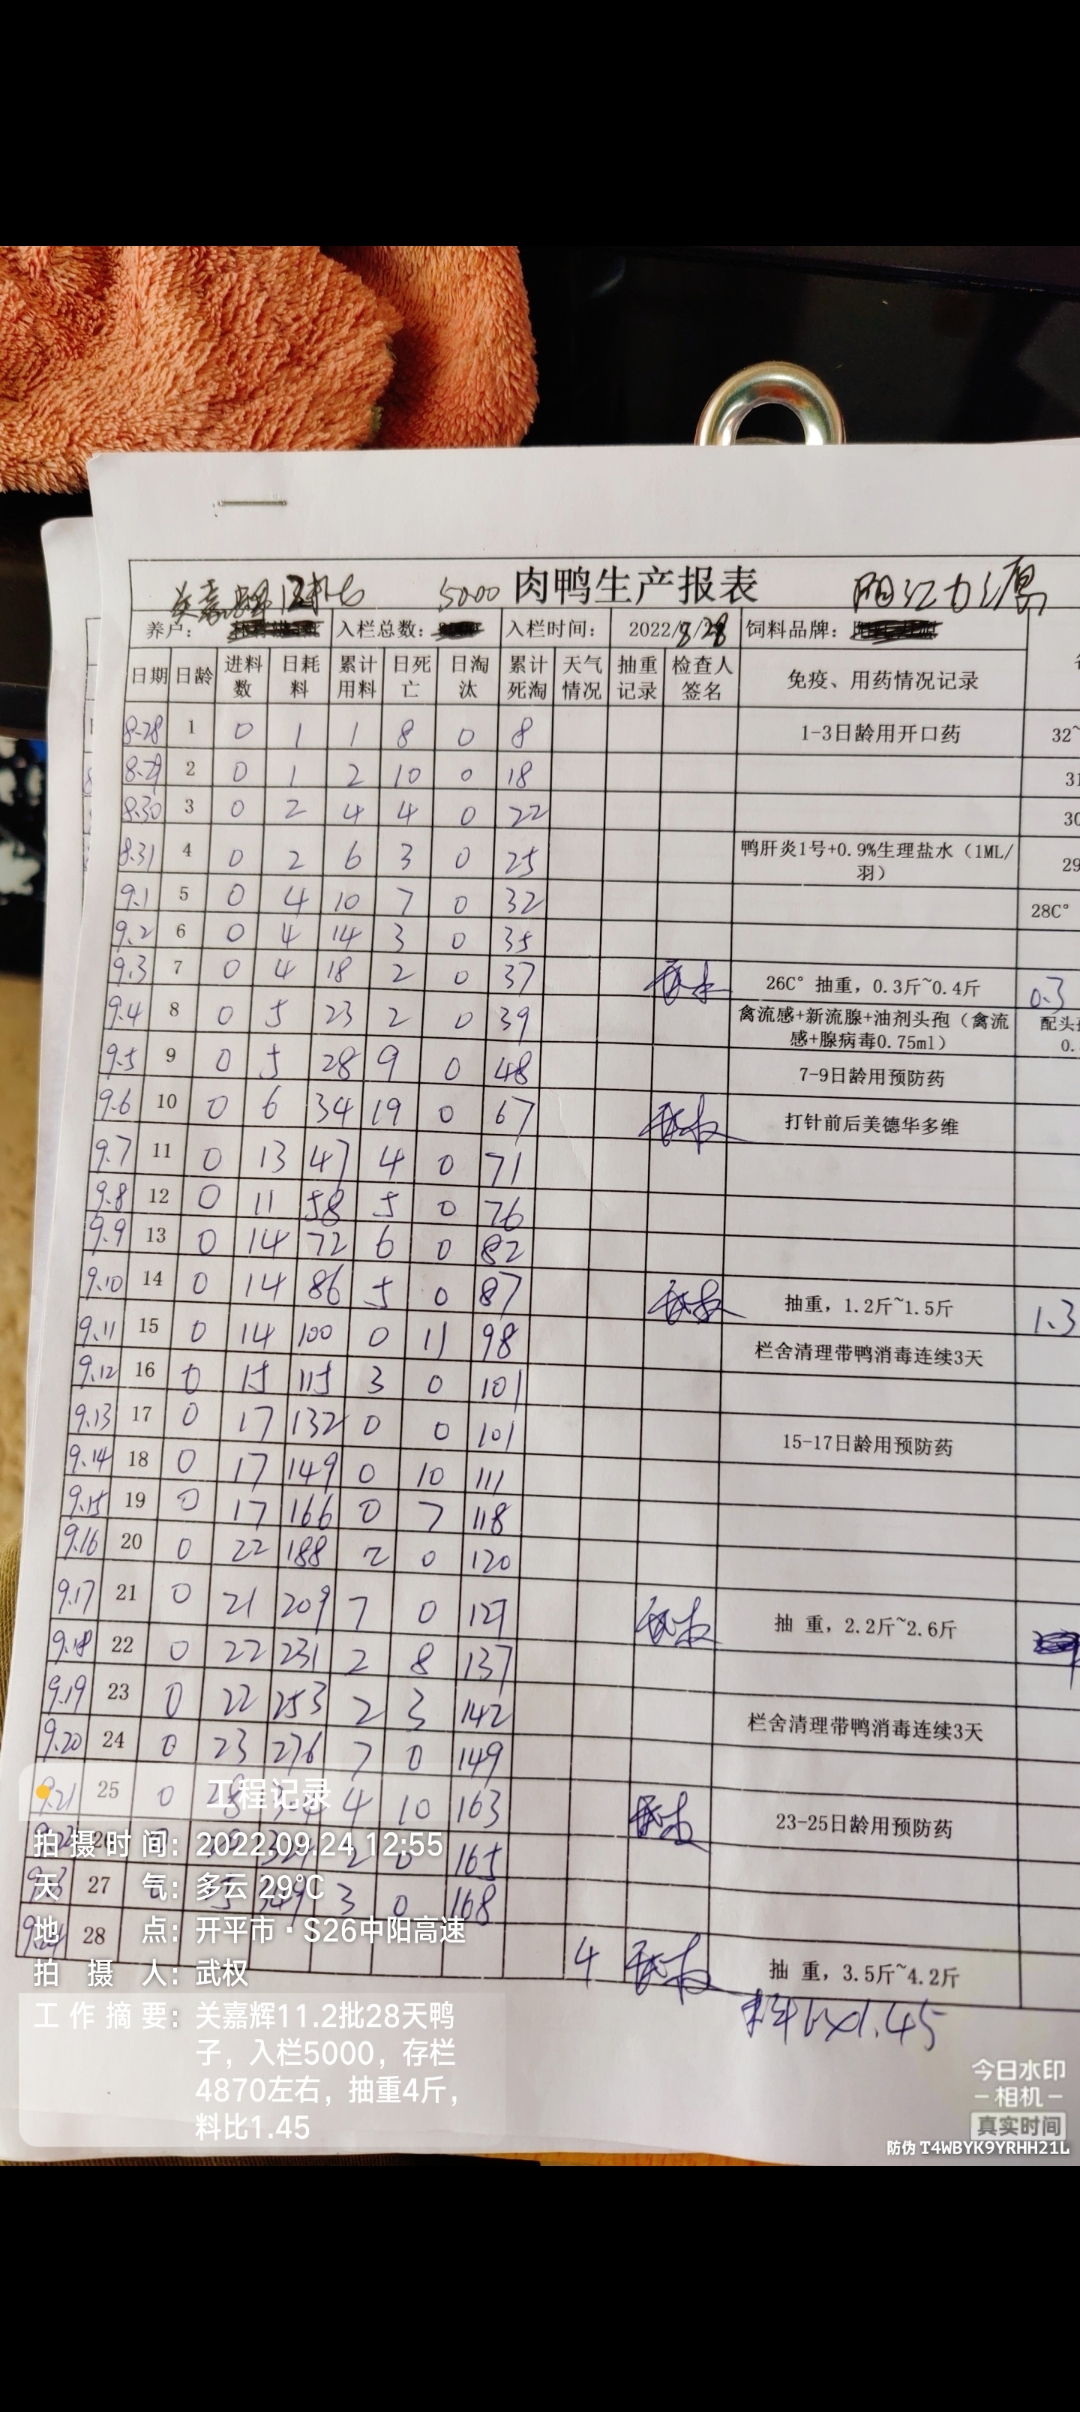 关嘉辉 5000 肉鸭生产报表 阳江力源
养户： 入栏总数： 入栏时间： 2022/8/28 饲料品牌：
日期 日龄 进料数 日耗料 累计用料 日死亡 日淘汰 累计死淘 天气情况 抽重记录 检查人签名 免疫、用药情况记录
8.28 1 0 1 1 8 0 8 1-3日龄用开口药 32~
8.29 2 0 1 2 10 0 18 31
8.30 3 0 2 4 4 0 22 30
8.31 4 0 2 6 3 0 25 鸭肝炎1号+0.9%生理盐水（1ML/羽） 29
9.1 5 0 4 10 7 0 32 28C°
9.2 6 0 4 14 3 0 35
9.3 7 0 4 18 2 0 37 武权 26C° 抽重，0.3斤~0.4斤 0.3
9.4 8 0 5 23 2 0 39 禽流感+新流腺+油剂头孢（禽流感+腺病毒0.75ml） 配头孢 0.
9.5 9 0 5 28 9 0 48 7-9日龄用预防药
9.6 10 0 6 34 19 0 67 武权 打针前后美德华多维
9.7 11 0 13 47 4 0 71
9.8 12 0 11 58 5 0 76
9.9 13 0 14 72 6 0 82
9.10 14 0 14 86 5 0 87 武权 抽重，1.2斤~1.5斤 1.3
9.11 15 0 14 100 0 11 98 栏舍清理带鸭消毒连续3天
9.12 16 0 15 115 3 0 101
9.13 17 0 17 132 0 0 101 15-17日龄用预防药
9.14 18 0 17 149 0 10 111
9.15 19 0 17 166 0 7 118
9.16 20 0 22 188 2 0 120
9.17 21 0 21 209 7 0 127 武权 抽 重，2.2斤~2.6斤
9.18 22 0 22 231 2 8 137
9.19 23 0 22 253 2 3 142 栏舍清理带鸭消毒连续3天
9.20 24 0 23 276 7 0 149
9.21 25 0 4 10 163 武权 23-25日龄用预防药
2 0 165
27 349 3 0 168
28 4 武权 抽 重，3.5斤~4.2斤
料比1.45
工程记录
拍摄时间：2022.09.24 12:55
天 气：多云 29℃
地 点：开平市·S26中阳高速
拍 摄 人：武权
工作摘要：关嘉辉11.2批28天鸭
子，入栏5000，存栏
4870左右，抽重4斤，
料比1.45
今日水印
相机
真实时间
防伪 T4WBYK9YRHH21L